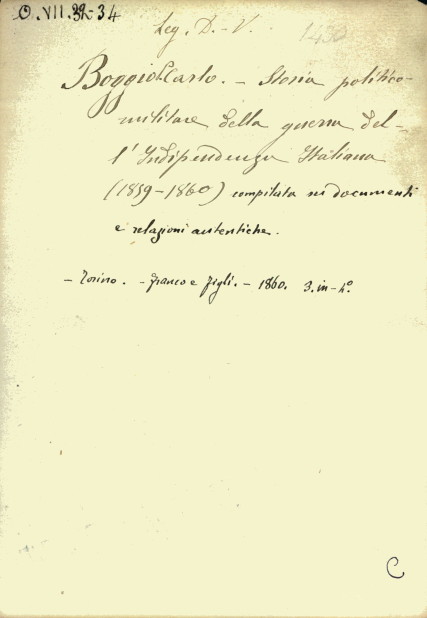 O. VII. 32-34
Leg. D. - V.
1430
Boggio Carlo. - Storia politico-
militare della guerra del-
l'Indipendenza Italiana
(1859-1860) compilata su documenti
e relazioni autentiche.
- Torino. - Franco e Figli. - 1860. 3. in-4°.
C